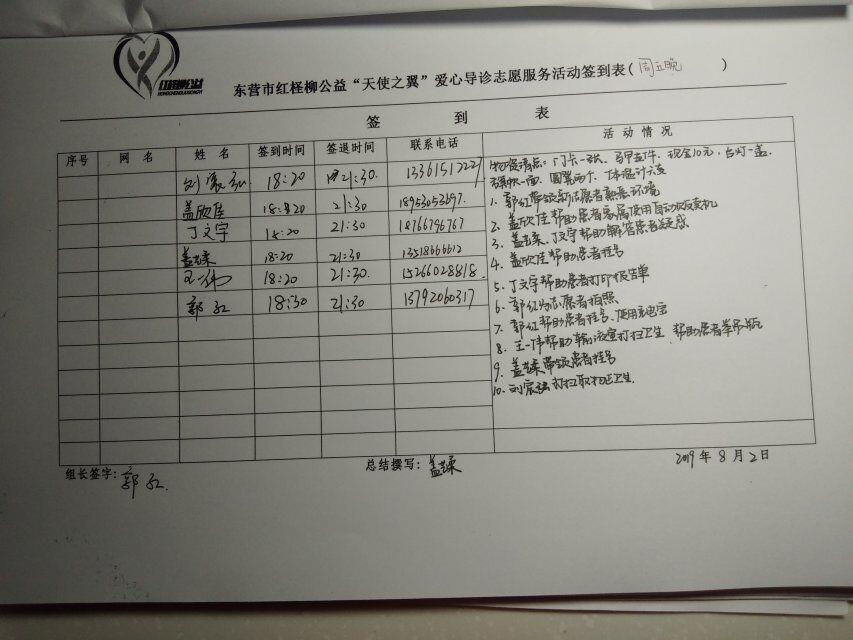 红柽柳公益
东营市红柽柳公益“天使之翼”爱心导诊志愿服务活动签到表(周五晚)
签到表
序号 网名 姓名 签到时间 签退时间 联系电话 活动情况
18:20 21:30. 13361512221
盖欣佳 18:20 21:30 18953053697.
丁文宇 18:20 21:30 18766796767
盖艺柔 18:20 21:30 13518666612
王一伟 18:20 21:30. 15266028818.
郭红 18:30 21:30 13792060317
物资清点:门卡一张、马甲五件、现金10元、台灯一盏.
旗帜一面、圆凳两个、体温计六支
1. 郭红带领新志愿者熟悉环境
2. 盖欣佳帮助患者家属使用自动贩卖机
3. 盖艺柔、丁文宇帮助解答患者疑惑
4. 盖欣佳帮助患者挂号
5. 丁文宇帮助患者打印报告单
6. 郭红为志愿者拍照
7. 郭红帮助患者挂号、使用充电宝
8. 王一伟帮助输液室打扫卫生、帮助患者举吊瓶
9. 盖艺柔带领患者挂号
10. 打扫取药区卫生.
组长签字:郭红
总结撰写:盖艺柔
2019年8月2日